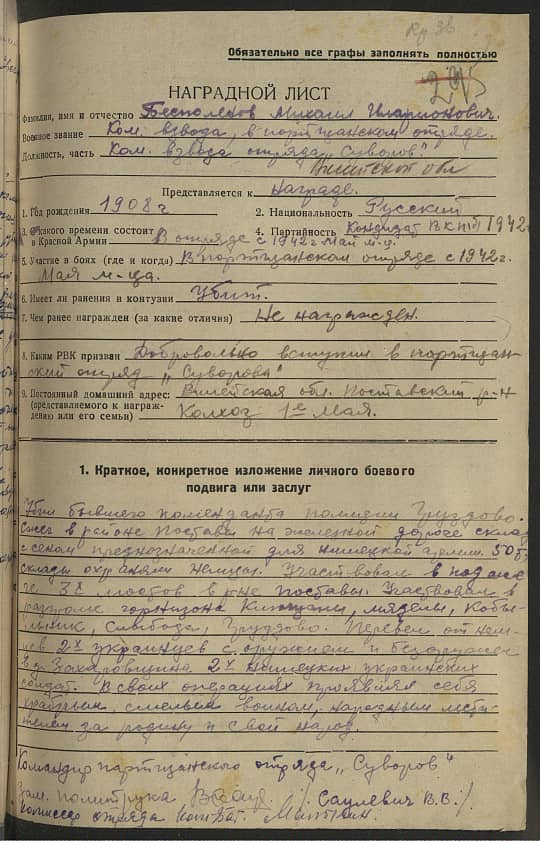 Обязательно все графы заполнять полностью
НАГРАДНОЙ ЛИСТ
Фамилия, имя и отчество Бесполенов Михаил Иларионович.
Военное звание Ком. взвода, в портизанском отряде.
Должность, часть Ком. взвода отряда „Суворов".
обл
Представляется к Награде.
1. Год рождения 1908 г 2. Национальность Русский
3. С какого времени состоит 4. Партийность Кондидат ВКП(б) 1942
в Красной Армии В отряде с 1942 г Май м-ц.
5. Участие в боях (где и когда) В портизанском отряде с 1942 г.
Мая м-ца.
6. Имеет ли ранения и контузии Убит.
7. Чем ранее награжден (за какие отличия) Не награжден.
8. Каким РВК призван Добровольно вступил в портизан-
ский отряд „Суворова"
9. Постоянный домашний адрес: Вилейская обл. Поставский р-н
(представляемого к награж- Колхоз 1е Мая.
дению или его семьи)
1. Краткое, конкретное изложение личного боевого
подвига или заслуг
Убил бывшего коменданта полиции Груздово.
Сжег в районе Поставы на железной дороге склад
с сеном предназначенной для немецкой армии. 50
склады охраняли немцы. Участвовал в поджи-
ге 38 мостов в р-не Поставы. Участвовал в
разгроме горнизона мяделы, Кобы-
льник, Слабода, Груздово. Перевел от нем-
цев 2х украинцев с оружием и
в д. Захаровщина 2х немецких украинских
солдат. В своих операциях проявлял себя
храбрым, смелым воином, народным мсти-
телем за родину и свой народ.
Командир партизанского отряда „Суворов"
Зам. политрука /Саулевич В.В./
Комиссар отряда